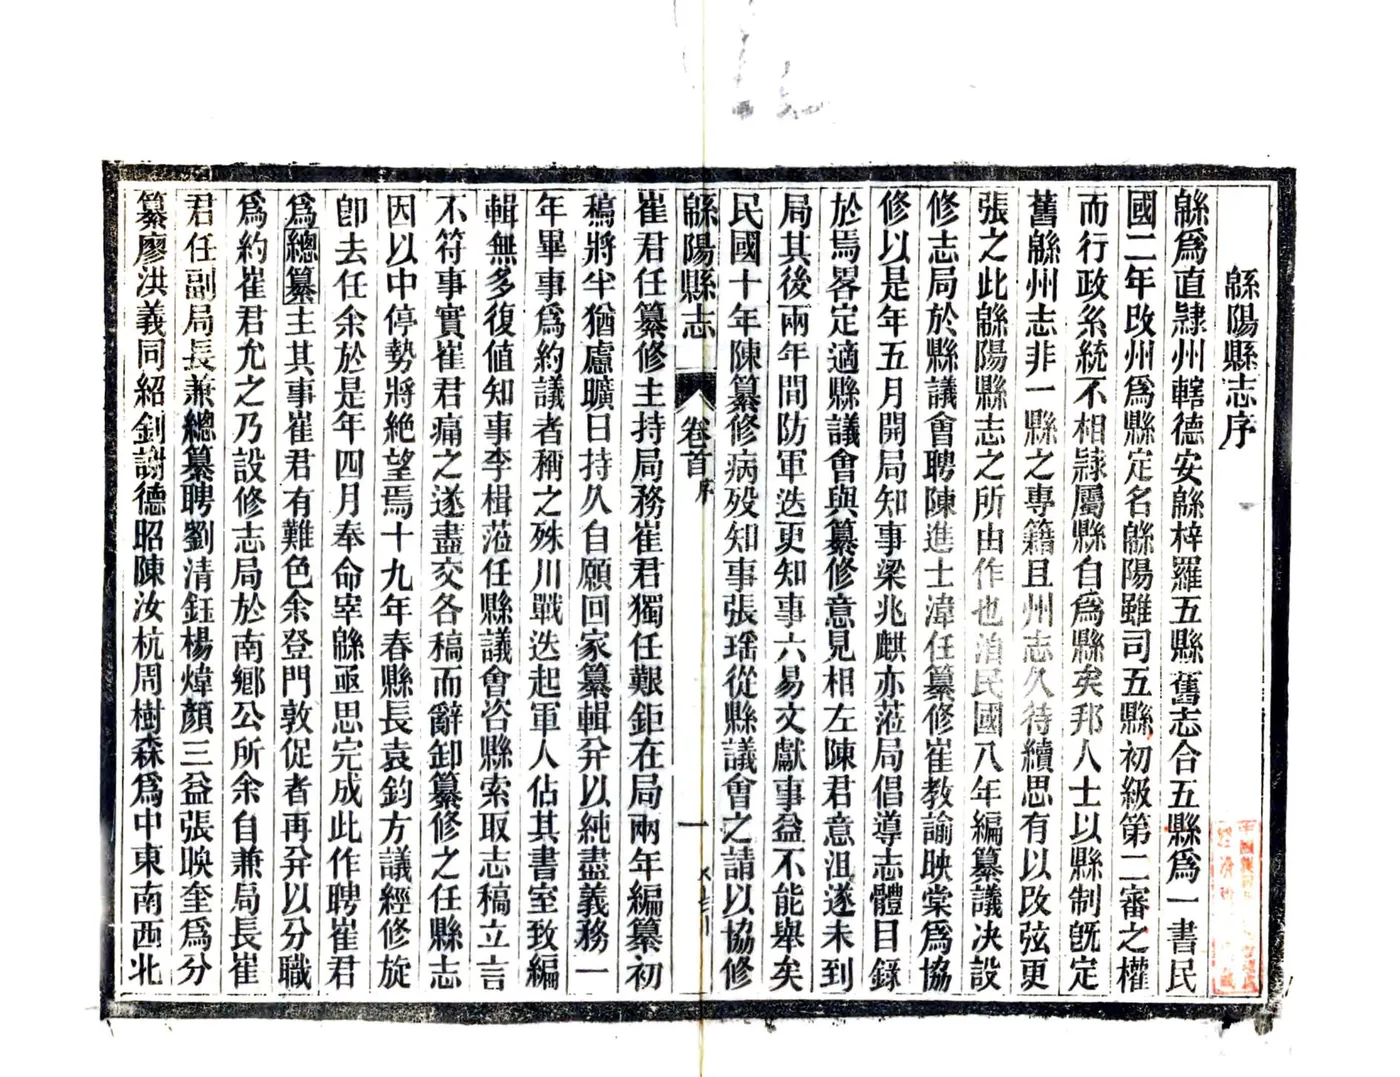 緜陽縣志序
緜爲直隷州轄德安緜梓羅五縣舊志合五縣爲一書民
國二年改州爲縣定名緜陽雖司五縣初級第二審之權
而行政系統不相隷屬縣自爲縣矣邦人士以縣制旣定
舊緜州志非一縣之專籍且州志久待續思有以改弦更
張之此緜陽縣志之所由作也洎民國八年編纂議决設
修志局於縣議會聘陳進士湋任纂修崔教諭映棠爲協
修以是年五月開局知事梁兆麒亦蒞局倡導志體目錄
於焉畧定適縣議會與纂修意見相左陳君意沮遂未到
局其後兩年間防軍迭更知事六易文獻事益不能舉矣
民國十年陳纂修病殁知事張瑤從縣議會之請以協修
緜陽縣志 卷首 序 一
崔君任纂修主持局務崔君獨任艱鉅在局兩年編纂初
稿將半猶慮曠日持久自願回家纂輯并以純盡義務一
年畢事爲約議者稱之殊川戰迭起軍人佔其書室致編
輯無多復値知事李楫蒞任縣議會咨縣索取志稿立言
不符事實崔君痛之遂盡交各稿而辭卸纂修之任縣志
因以中停勢將絶望焉十九年春縣長袁鈞方議經修旋
卽去任余於是年四月奉命宰緜亟思完成此作聘崔君
爲總纂主其事崔君有難色余登門敦促者再并以分職
爲約崔君允之乃設修志局於南鄉公所余自兼局長崔
君任副局長兼總纂聘劉清鈺楊煒顏三益張映奎爲分
纂廖洪義同紹釗謝德昭陳汝杭周樹森爲中東南西北